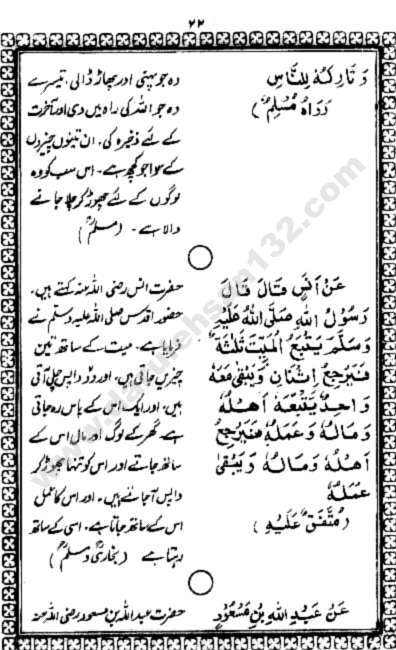 ۲۲
وَتَارِكُهٗ لِلنَّاسِ
رَوَاهُ مُسْلِمٌ)
وہ جو پہنی اور پھاڑ ڈالی، تیسرے
وہ جو اللہ کی راہ میں دی اور آخرت
کے لئے ذخیرہ کی، ان تینوں چیزوں
کے سوا جو کچھ ہے۔ اس سب کو وہ
لوگوں کے لئے چھوڑ کر چلا جانے
والا ہے۔ (مسلمؒ)
عَنْ اَنَسٍ قَالَ قَالَ
رَسُوْلُ اللهِ صَلَّى اللهُ عَلَيْهِ
وَسَلَّمَ يَتْبَعُ الْمَيِّتَ ثَلٰثَةٌ
فَيَرْجِعُ اِثْنَانِ وَيَبْقٰى مَعَهٗ
وَاحِدٌ يَتْبَعُهٗ اَهْلُهٗ
وَمَالُهٗ وَعَمَلُهٗ فَيَرْجِعُ
اَهْلُهٗ وَمَالُهٗ وَيَبْقٰى
عَمَلُهٗ
(مُتَّفَقٌ عَلَيْهِ)
حضرت انس رضی اللہ عنہ کہتے ہیں۔
حضور اقدس صلی اللہ علیہ وسلم نے
فرمایا ہے۔ میت کے ساتھ تین
چیزیں جاتی ہیں، اور دو واپس چلی آتی
ہیں، اور ایک اس کے پاس رہ جاتی
ہے۔ گھر کے لوگ اور مال اس کے
ساتھ جاتے اور اس کو تنہا چھوڑ کر
واپس آجاتے ہیں۔ اور اس کا عمل
اس کے ساتھ جاتا ہے۔ اسی کے ساتھ
رہتا ہے (بخاریؒ و مسلمؒ)
عَنْ عَبْدِ اللهِ بْنِ مَسْعُوْدٍ
حضرت عبداللہ بن مسعود رضی اللہ عنہ